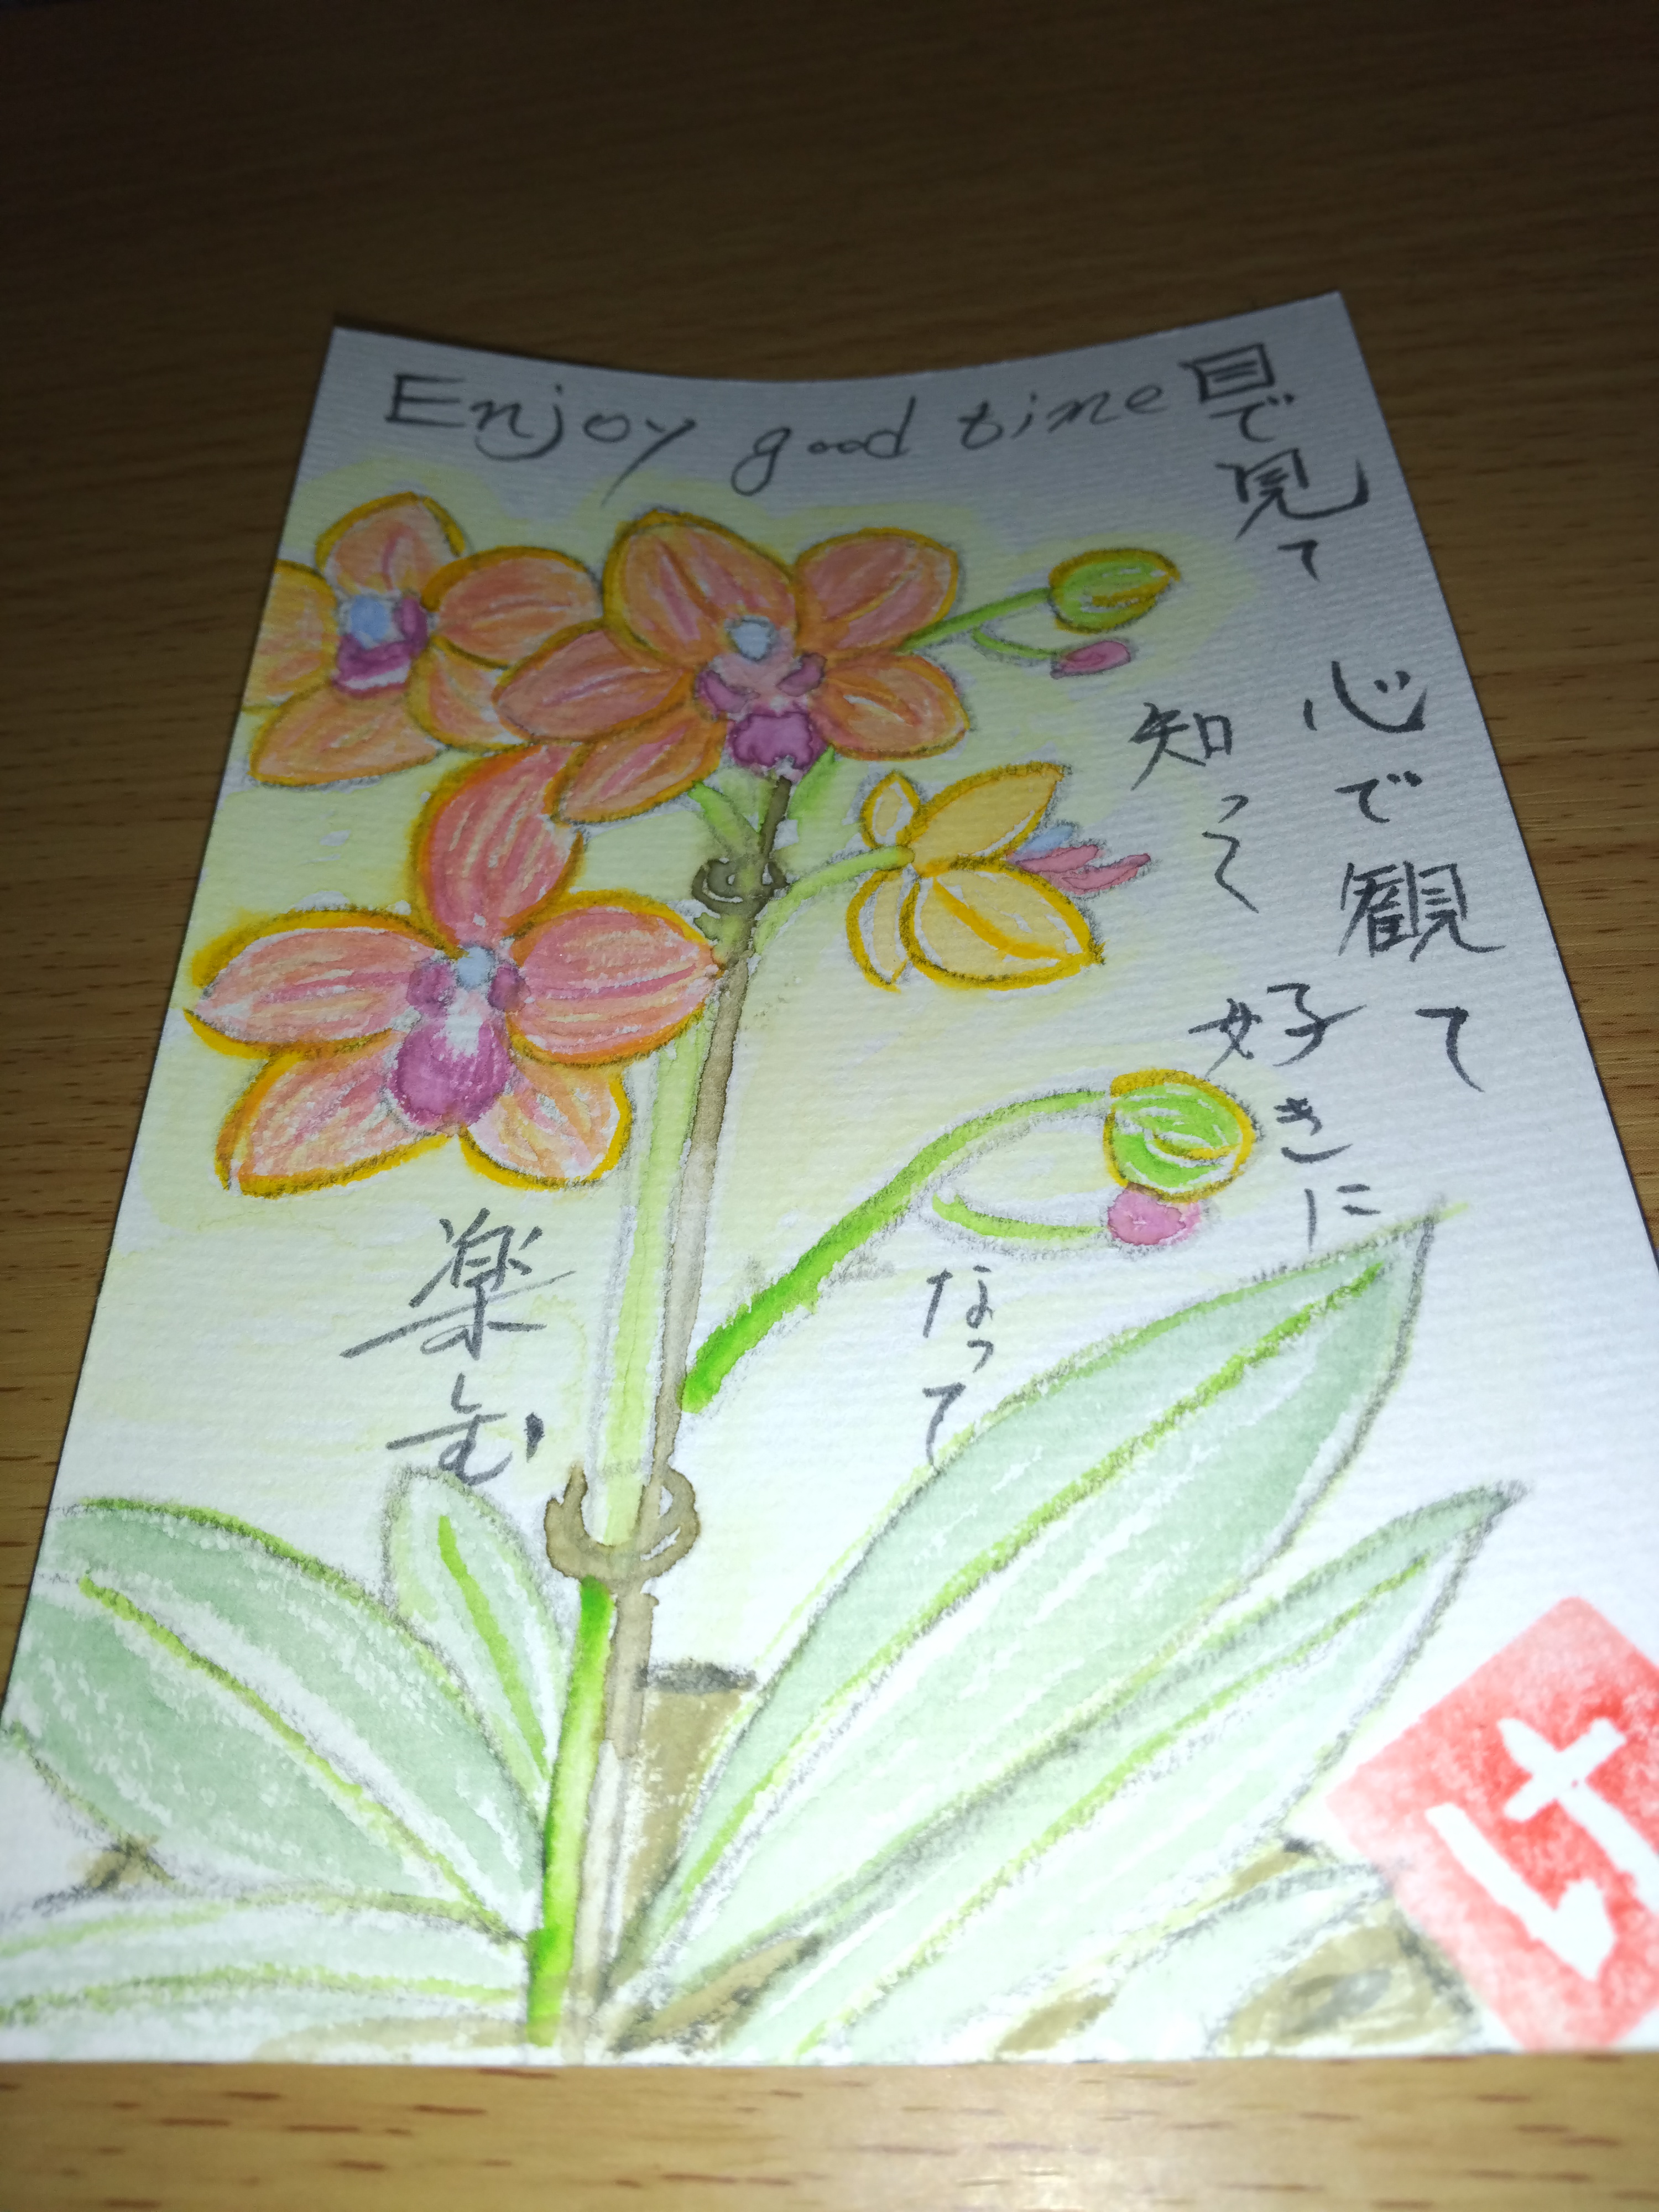 Enjoy good time
目で見て
心で観て
知って
好きに
なって
楽む
け